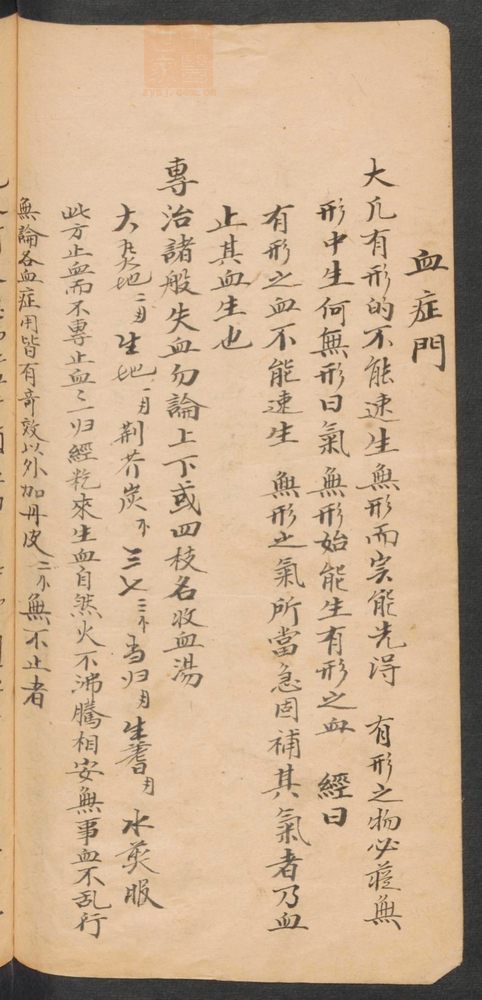 血症門
大凡有形的不能速生無形而实能先得 有形之物必從無
形中生何無形曰氣無形始能生有形之血 經曰
有形之血不能速生 無形之氣所當急固補其氣者乃血
止其血生也
專治諸般失血勿論上下或四枝名收血湯
大地二月生地一月荆芥炭 三七三个当归月生耆月 水煎服
此方止血而不專止血之一归經乾來生血自然火不沸騰相安無事血不乱行
無論各血症用皆有奇效以外加丹皮二个無不止者